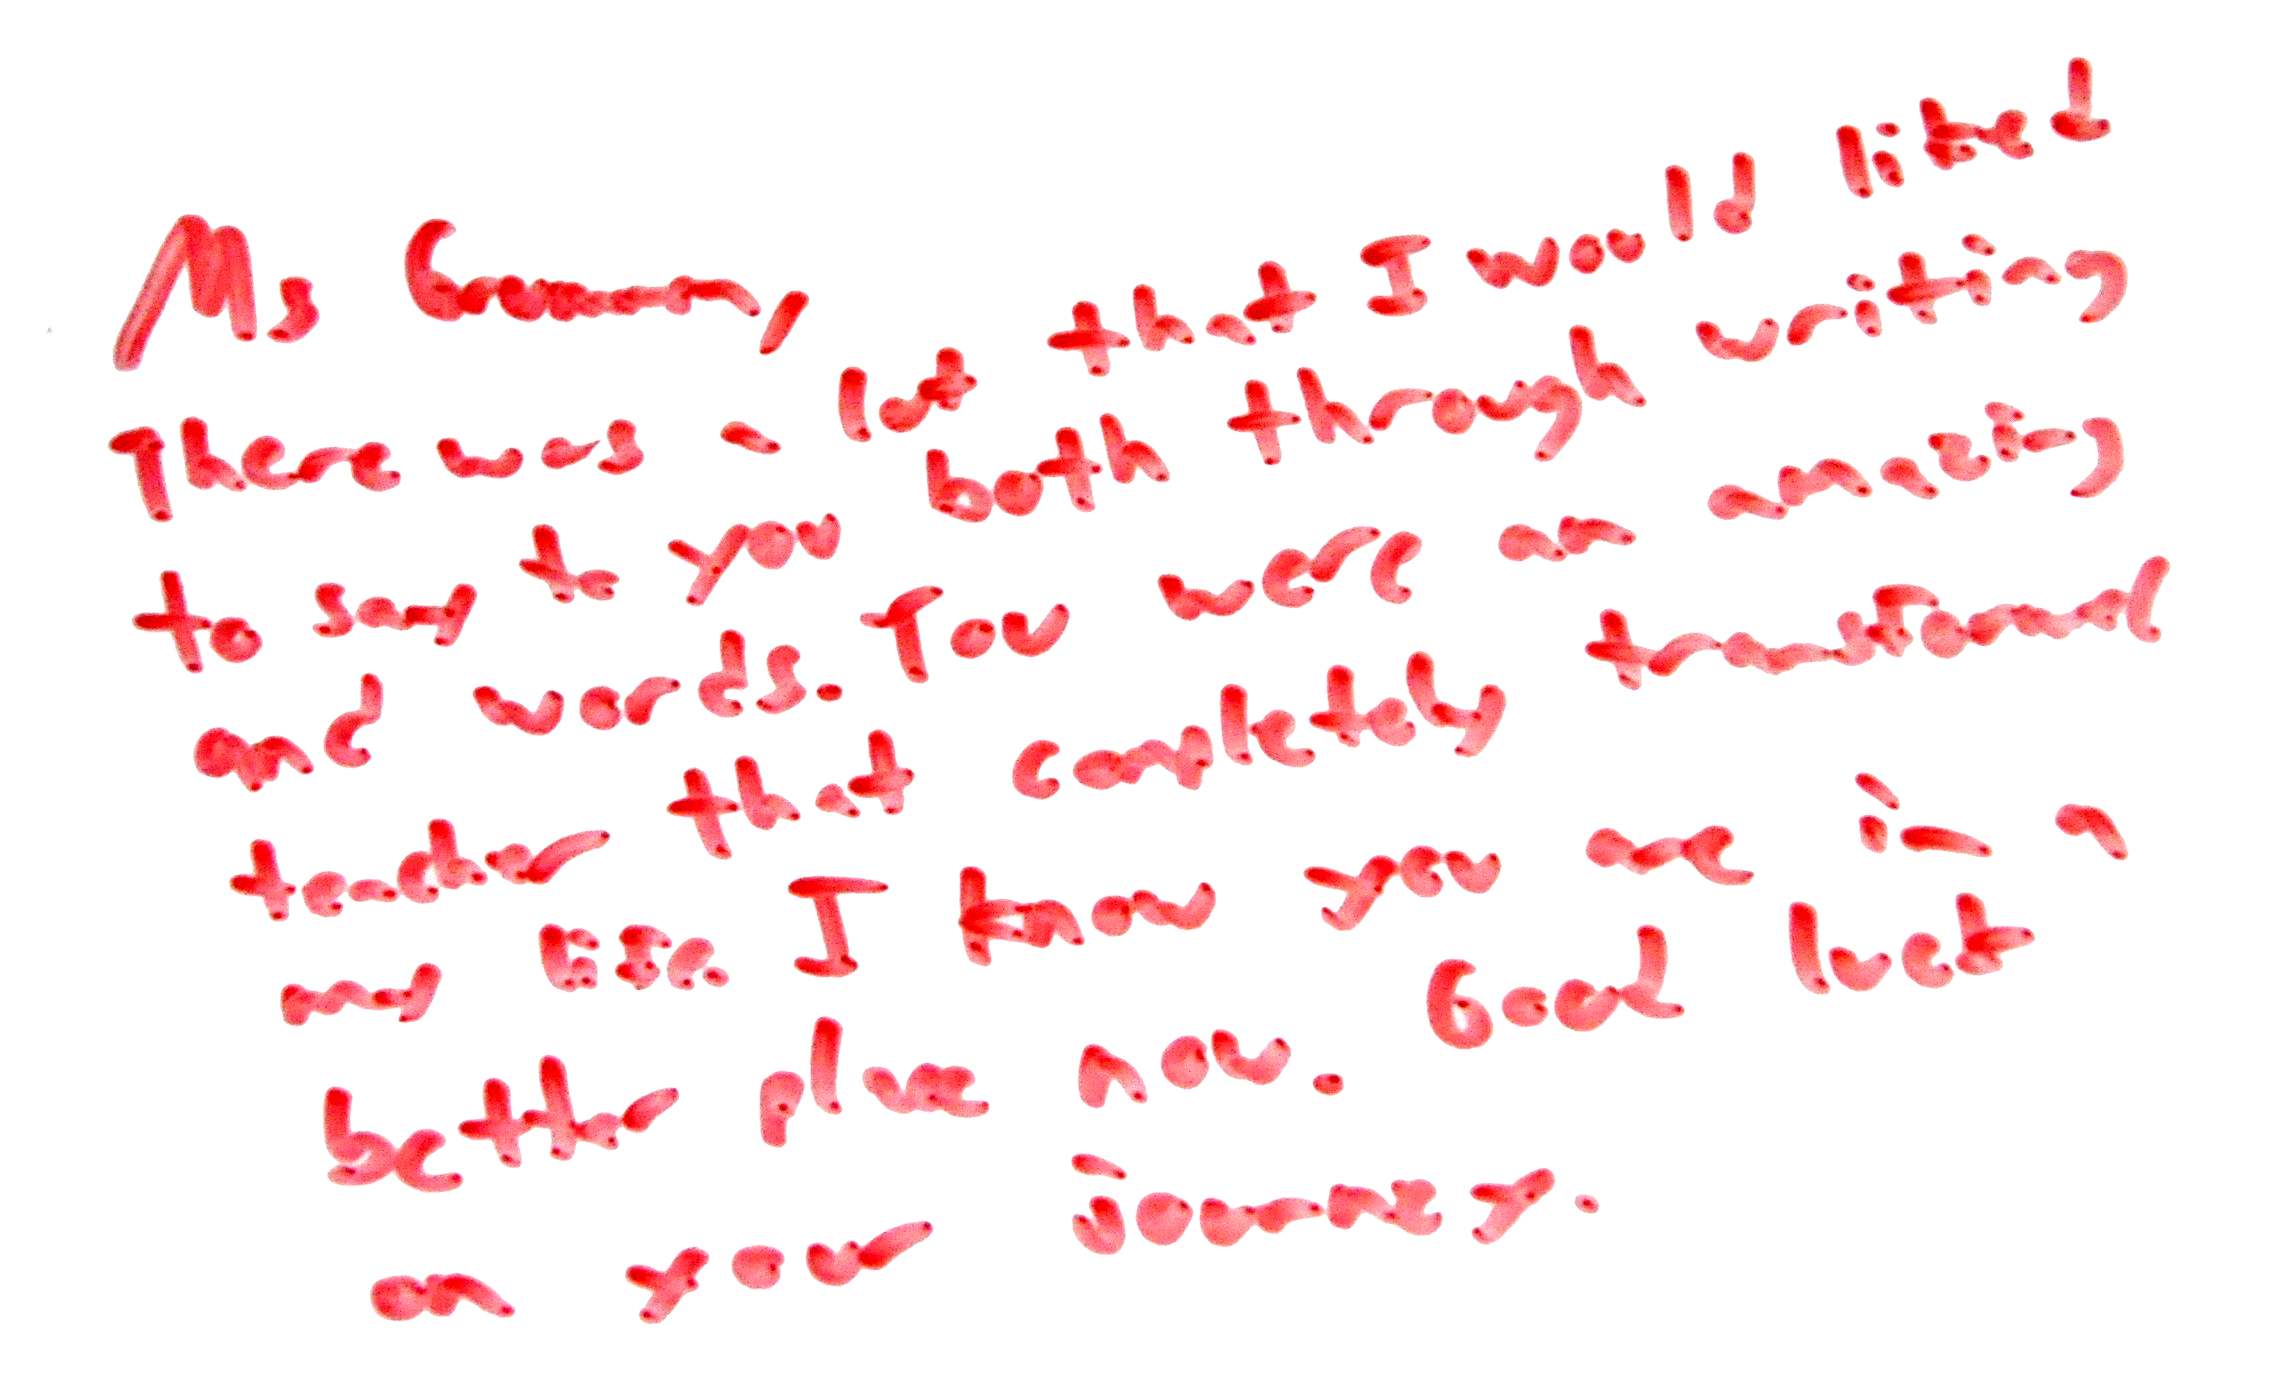 Ms
There was a lot that I would liked
to say to you both through writing
and words. You were an amazing
teacher that completely transformed
my life. I know you are in a
better place now. Good luck
on your journey.